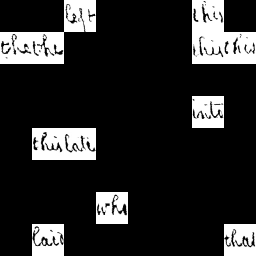 left this
the the this this
into
this late
who
laid that